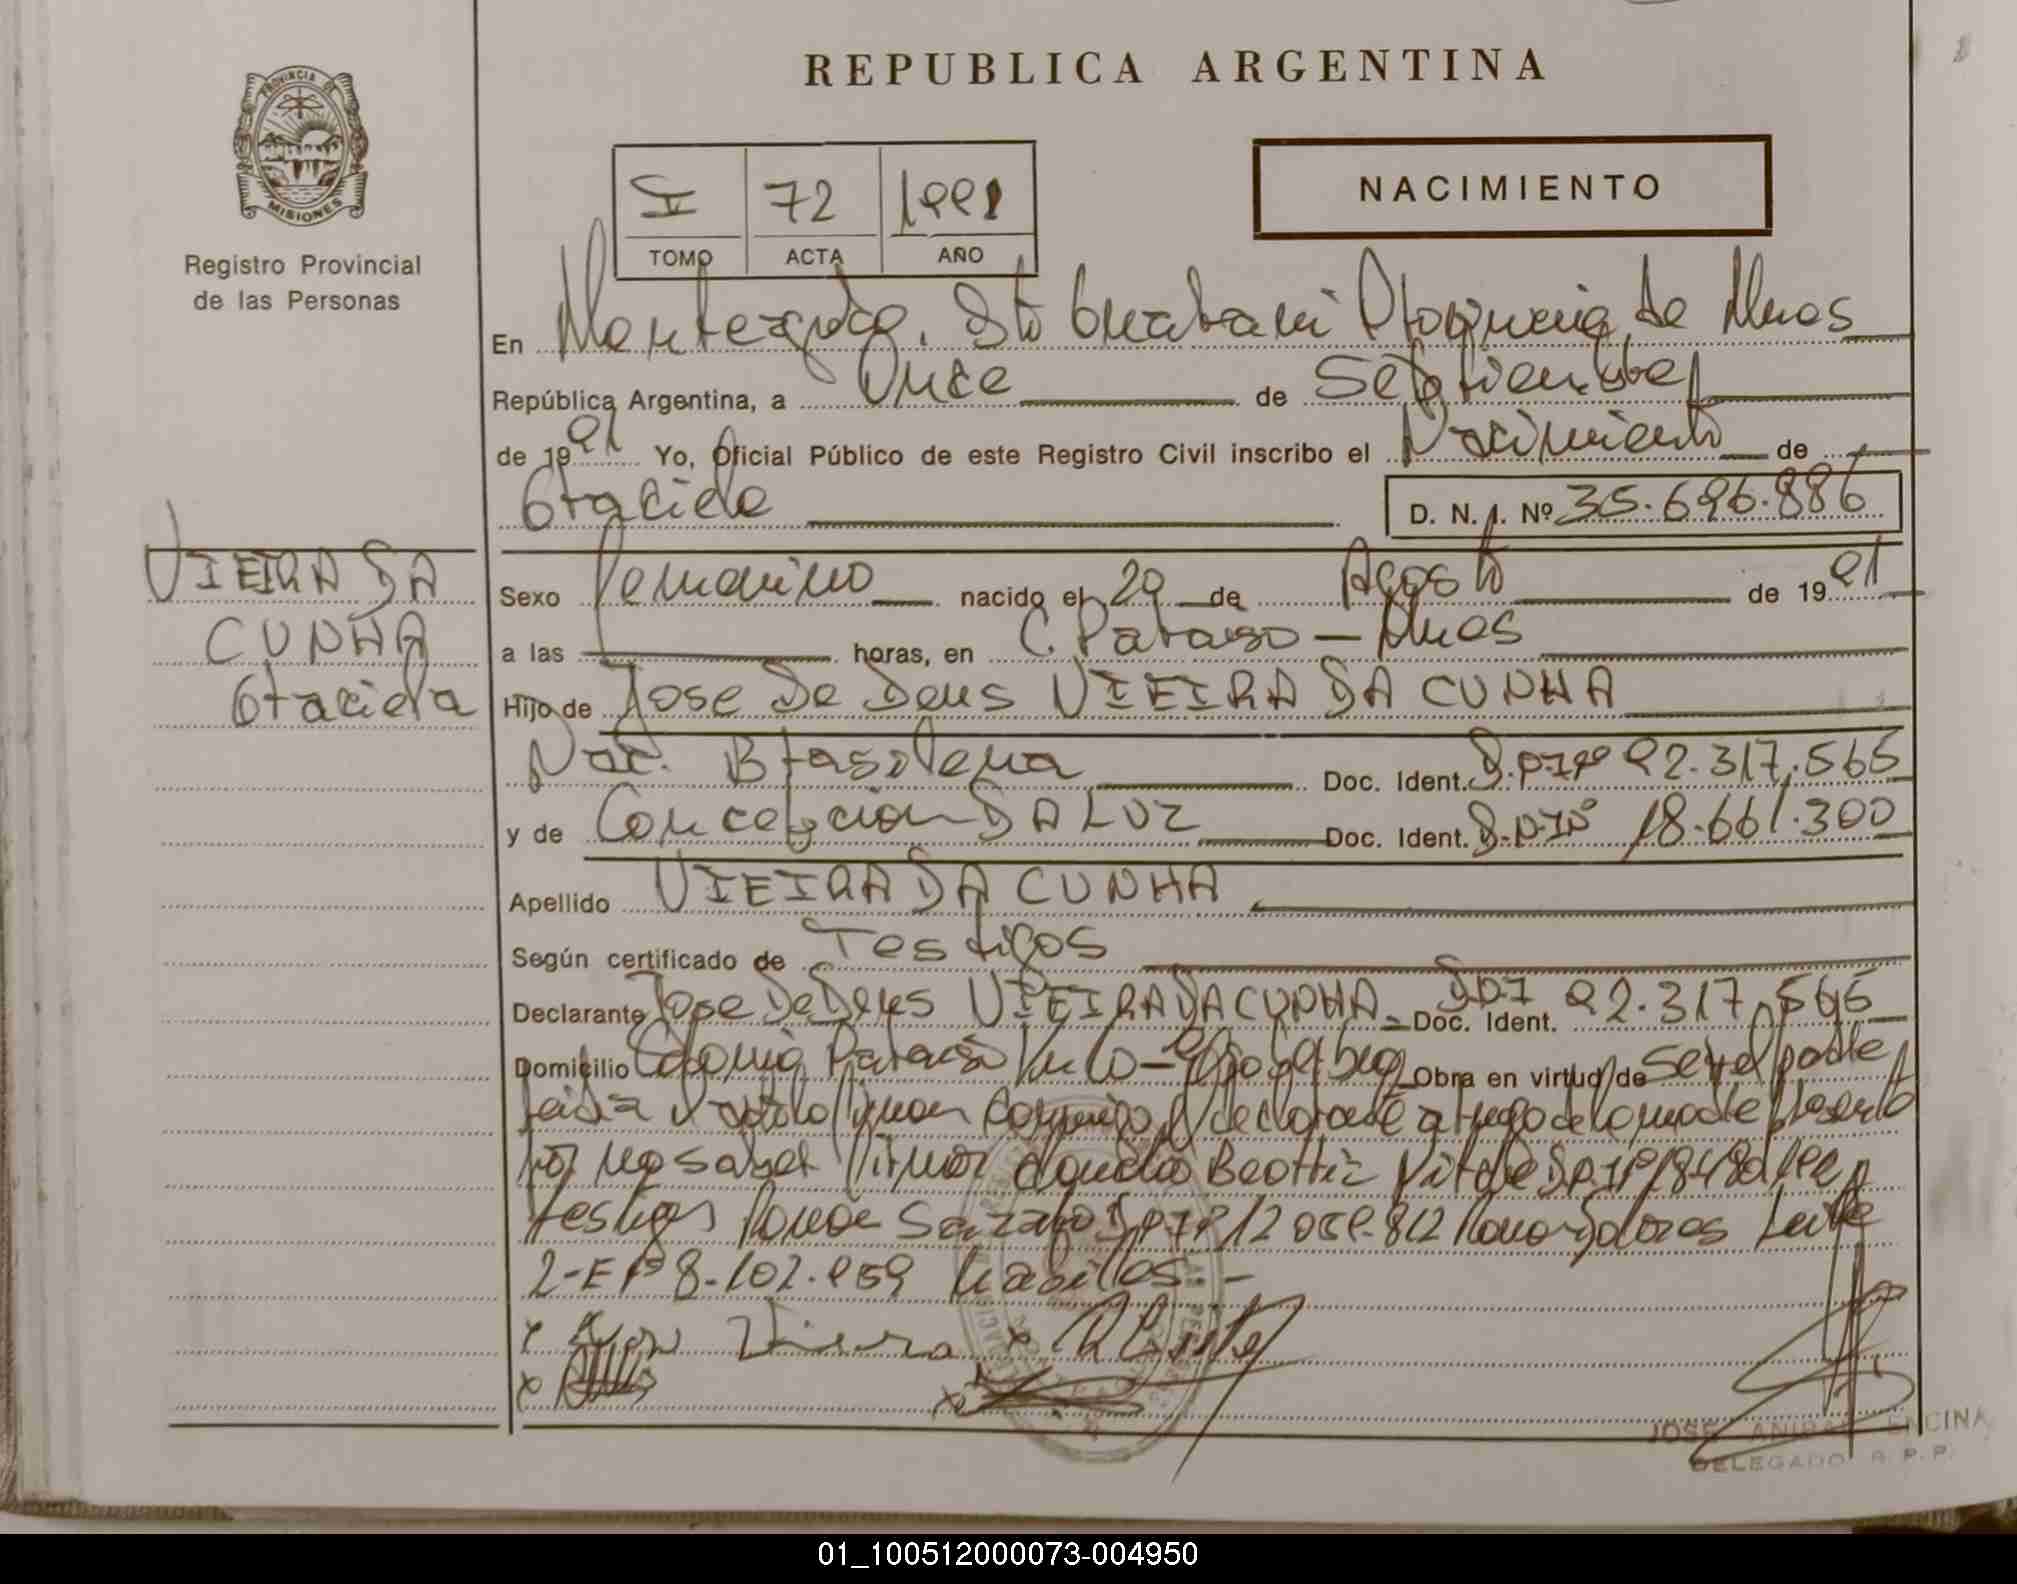 REPUBLICA ARGENTINA
PROVINCIA DE
MISIONES
Registro Provincial
de las Personas
I 72 1991
TOMO ACTA AÑO
NACIMIENTO
En Monteagudo, Dto Guarani Provincia de Mnes
República Argentina, a Once de Septiembre
de 1991 Yo, Oficial Público de este Registro Civil inscribo el Nacimiento de
Graciela D. N. I. Nº 35.696.886
VIEIRA DA
CUNHA
Graciela
Sexo Femenino nacido el 29 de Agosto de 1991
a las horas, en C. Paraiso - Mnes
Hijo de Jose De Deus VIEIRA DA CUNHA
Nac. Brasilena Doc. Ident. D.N.I Nº 92.317.565
y de Concepcion DA LUZ Doc. Ident. D.N.I Nº 18.661.300
Apellido VIEIRA DA CUNHA
Según certificado de Testigos
Declarante Jose De Deus VIEIRA DA CUNHA - Doc. Ident. DNI 92.317.565
Domicilio Colonia Paraiso Obra en virtud de ser el padre
leida firman conmigo el declarante a ruego de la madre presente
por no saber firmar Claudia Beatriz
testigos 12 Leite
2-E Nº 8.102.959 habiles.-
x Vieira x
x x
JOSE ANIBAL ENCINA
DELEGADO R. P. P.
01_100512000073-004950